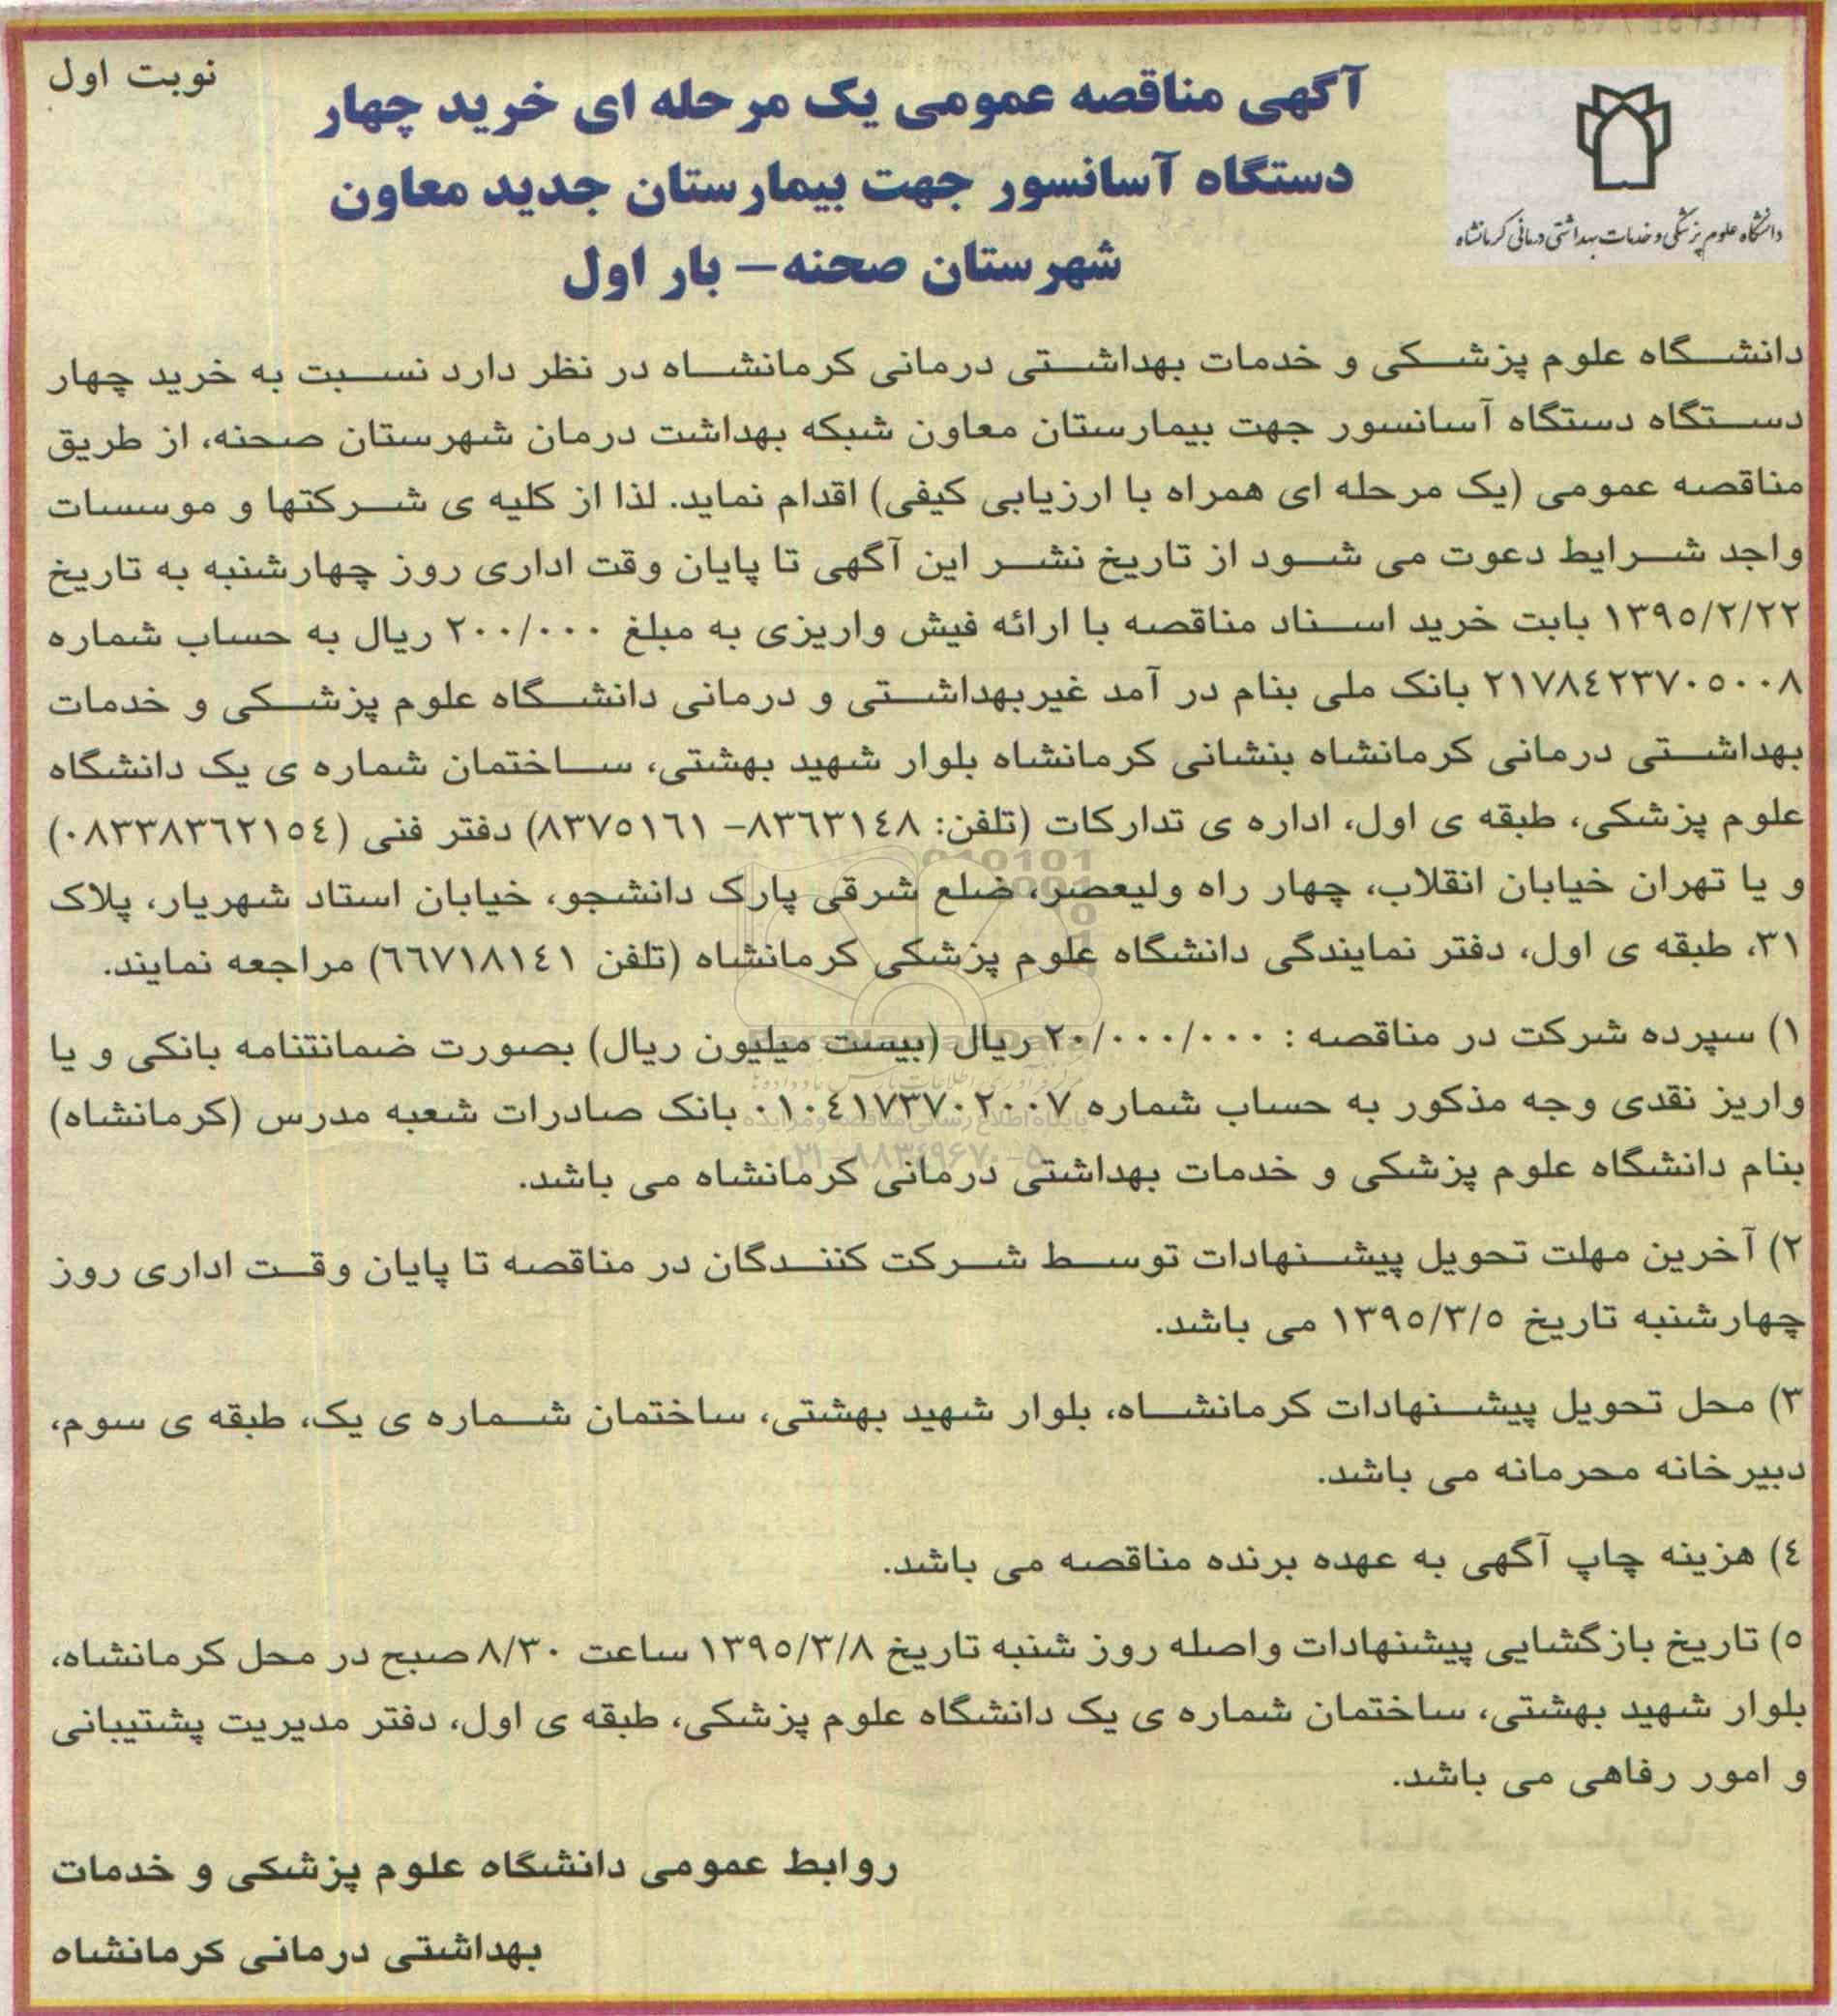 نوبت اول
آگهی مناقصه عمومی یک مرحله ای خرید چهار
دستگاه آسانسور جهت بیمارستان جدید معاون
شهرستان صحنه – بار اول
دانشگاه علوم پزشکی و خدمات بهداشتی درمانی کرمانشاه
دانشگاه علوم پزشکی و خدمات بهداشتی درمانی کرمانشاه در نظر دارد نسبت به خرید چهار
دستگاه دستگاه آسانسور جهت بیمارستان معاون شبکه بهداشت درمان شهرستان صحنه، از طریق
مناقصه عمومی (یک مرحله ای همراه با ارزیابی کیفی) اقدام نماید. لذا از کلیه ی شرکتها و موسسات
واجد شرایط دعوت می شود از تاریخ نشر این آگهی تا پایان وقت اداری روز چهارشنبه به تاریخ
۱۳۹٥/۲/۲۲ بابت خرید اسناد مناقصه با ارائه فیش واریزی به مبلغ ۲۰۰/۰۰۰ ریال به حساب شماره
۲۱۷۸٤۲۳۷۰٥۰۰۸ بانک ملی بنام در آمد غیربهداشتی و درمانی دانشگاه علوم پزشکی و خدمات
بهداشتی درمانی کرمانشاه بنشانی کرمانشاه بلوار شهید بهشتی، ساختمان شماره ی یک دانشگاه
علوم پزشکی، طبقه ی اول، اداره ی تدارکات (تلفن: ۸۳٦۳۱٤۸- ۸۳۷٥۱٦۱) دفتر فنی (۰۸۳۳۸۳٦۲۱٥٤)
و یا تهران خیابان انقلاب، چهار راه ولیعصر، ضلع شرقی پارک دانشجو، خیابان استاد شهریار، پلاک
۳۱، طبقه ی اول، دفتر نمایندگی دانشگاه علوم پزشکی کرمانشاه (تلفن ٦٦۷۱۸۱٤۱) مراجعه نمایند.
۱) سپرده شرکت در مناقصه : ۲۰/۰۰۰/۰۰۰ ریال (بیست میلیون ریال) بصورت ضمانتنامه بانکی و یا
واریز نقدی وجه مذکور به حساب شماره ۰۱۰٤۱۷۳۷۰۲۰۰۷ بانک صادرات شعبه مدرس (کرمانشاه)
بنام دانشگاه علوم پزشکی و خدمات بهداشتی درمانی کرمانشاه می باشد.
۲) آخرین مهلت تحویل پیشنهادات توسط شرکت کنندگان در مناقصه تا پایان وقت اداری روز
چهارشنبه تاریخ ۱۳۹٥/۳/٥ می باشد.
۳) محل تحویل پیشنهادات کرمانشاه، بلوار شهید بهشتی، ساختمان شماره ی یک، طبقه ی سوم،
دبیرخانه محرمانه می باشد.
٤) هزینه چاپ آگهی به عهده برنده مناقصه می باشد.
٥) تاریخ بازگشایی پیشنهادات واصله روز شنبه تاریخ ۱۳۹٥/۳/۸ ساعت ۸/۳۰ صبح در محل کرمانشاه،
بلوار شهید بهشتی، ساختمان شماره ی یک دانشگاه علوم پزشکی، طبقه ی اول، دفتر مدیریت پشتیبانی
و امور رفاهی می باشد.
روابط عمومی دانشگاه علوم پزشکی و خدمات
بهداشتی درمانی کرمانشاه